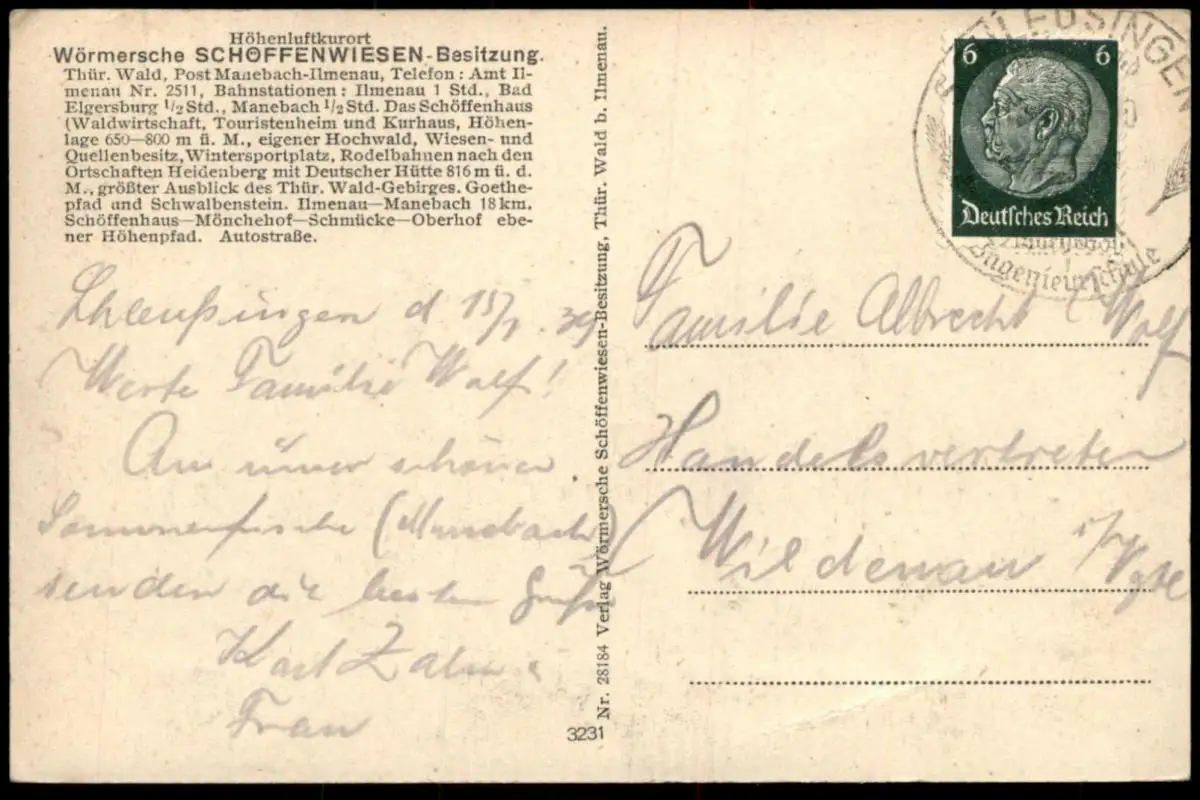 Höhenluftkurort
Wörmersche SCHÖFFENWIESEN-Besitzung.
Thür. Wald, Post Manebach-Ilmenau, Telefon: Amt Il-
menau Nr. 2511, Bahnstationen: Ilmenau 1 Std., Bad
Elgersburg 1/2 Std., Manebach 1/2 Std. Das Schöffenhaus
(Waldwirtschaft, Touristenheim und Kurhaus, Höhen-
lage 650—800 m ü. M., eigener Hochwald, Wiesen- und
Quellenbesitz, Wintersportplatz, Rodelbahnen nach den
Ortschaften Heidenberg mit Deutscher Hütte 816 m ü. d.
M., größter Ausblick des Thür. Wald-Gebirges. Goethe-
pfad und Schwalbenstein. Ilmenau—Manebach 18 km.
Schöffenhaus—Mönchehof—Schmücke—Oberhof ebe-
ner Höhenpfad. Autostraße.
Schleußingen d 15/7. 39
Werte Familie Wolf!
Aus schöner
Sommerfrische
senden die besten Grüße
Karl Zahn u
Frau
Nr. 28184 Verlag Wörmersche Schöffenwiesen-Besitzung, Thür. Wald b. Ilmenau.
3231
SCHLEUSINGEN
Ingenieurschule
6 6
Deutsches Reich
Familie Albrecht Wolf
Handelsvertreter
Wildenau i/Vgtl